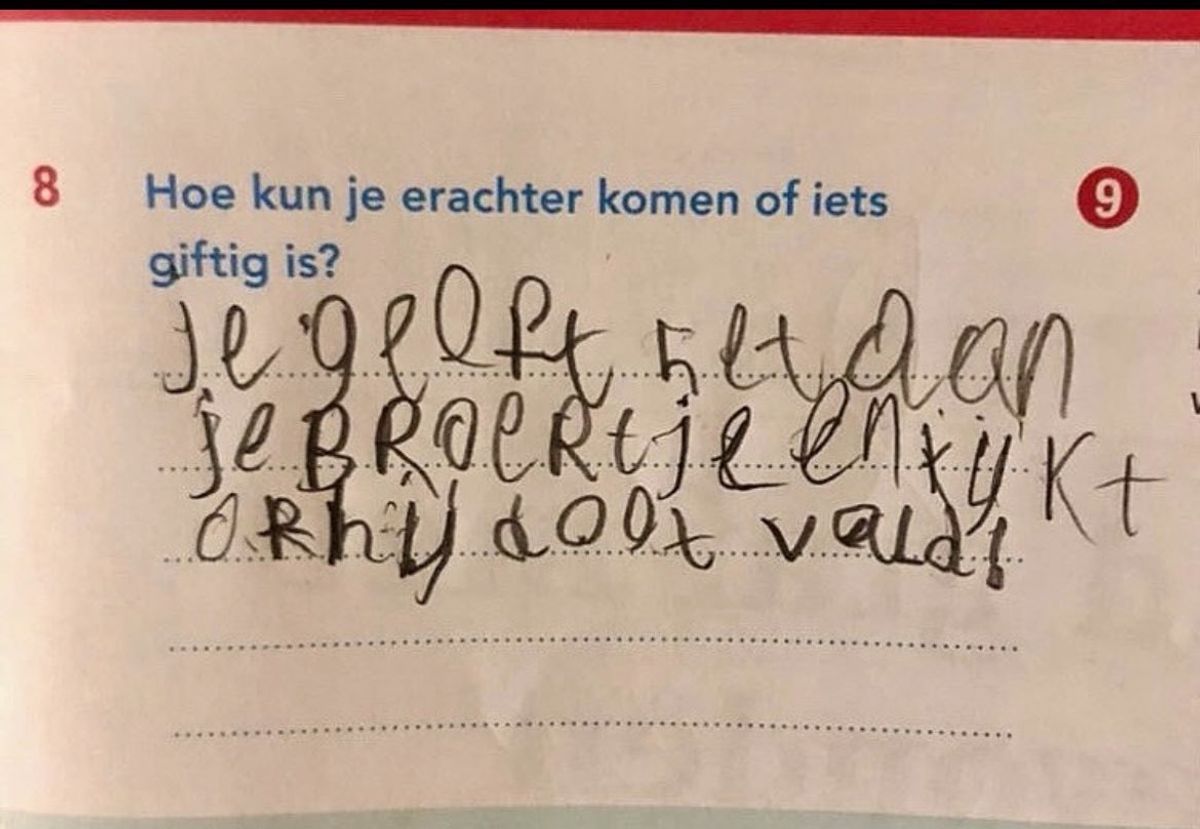 8 Hoe kun je erachter komen of iets 9
giftig is?
Je geeft het aan
je BROeRtje en kijkt
of hij doot vald!